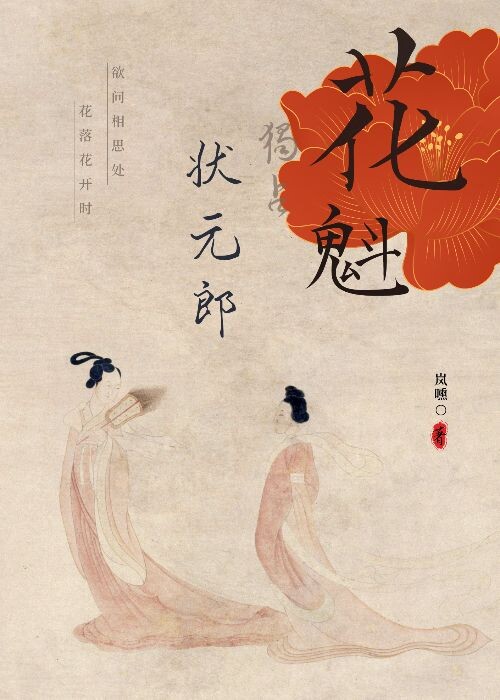 花魁
獨占
状元郎
欲问相思处
花落花开时
岚嚑〇
著